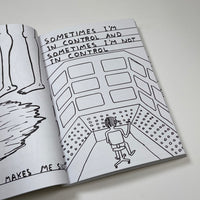 SOMETIMES I'M
IN CONTROL AND
SOMETIMES I'M NOT
IN CONTROL
MAKES ME